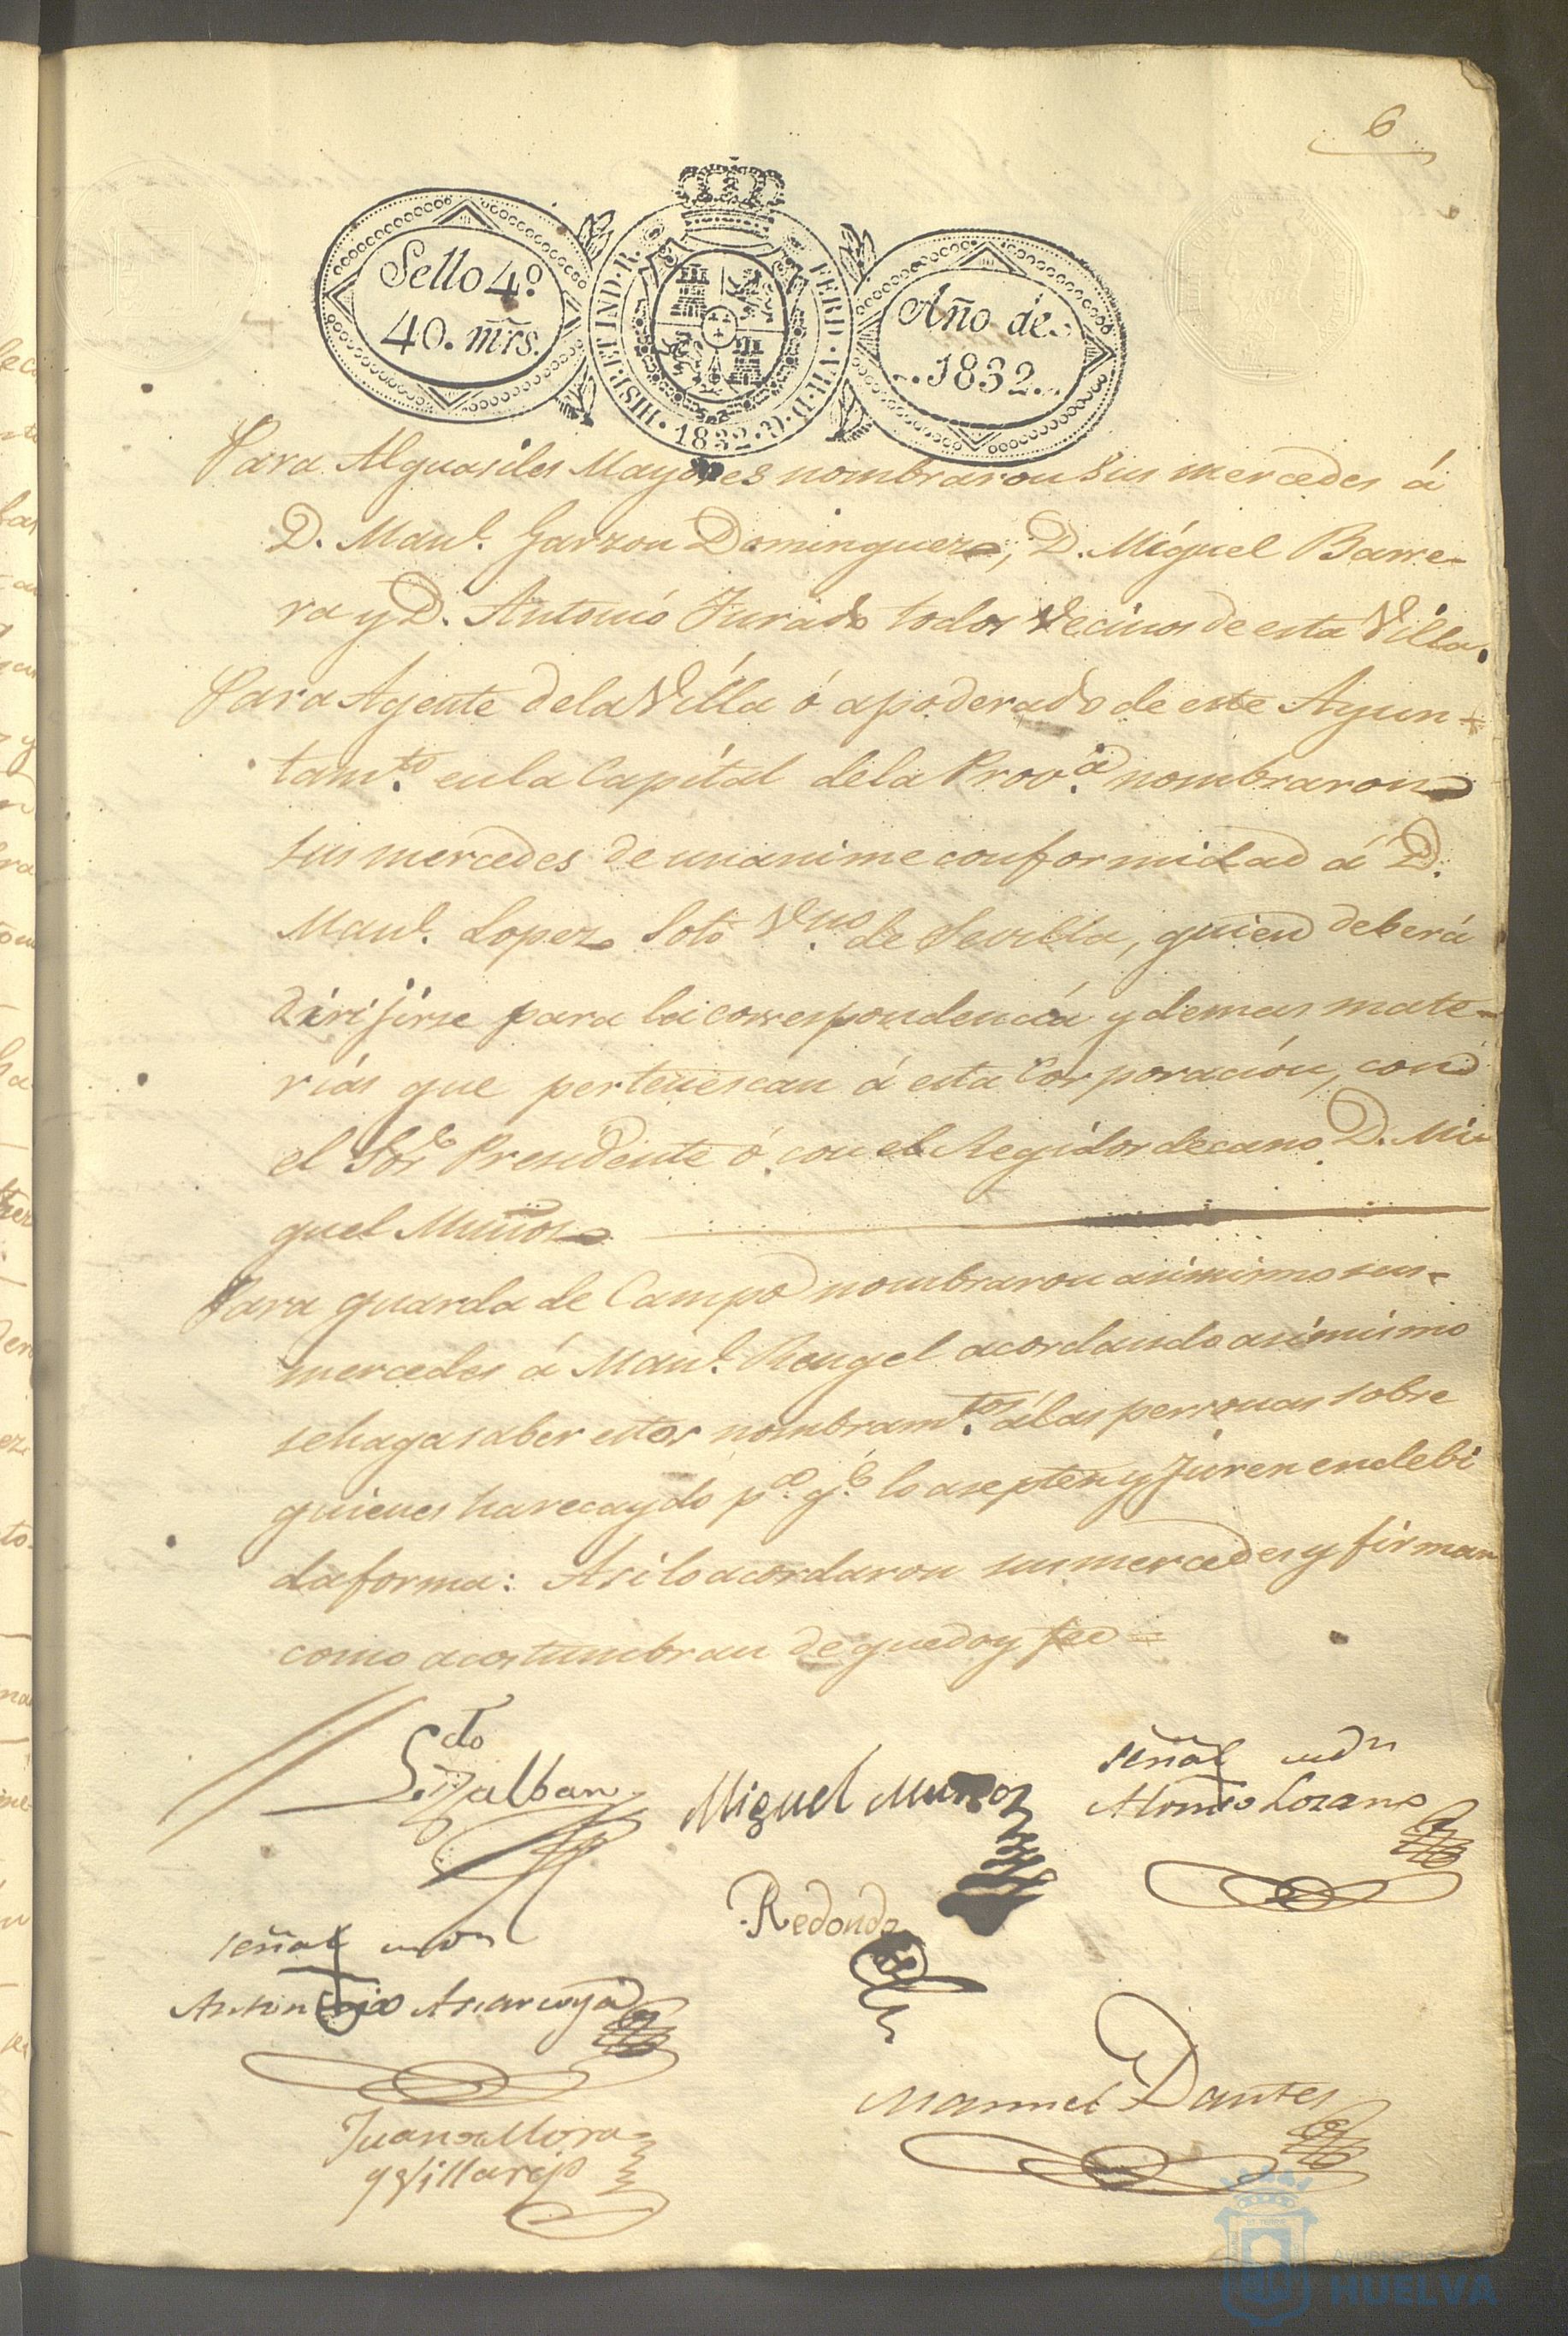 6
Sello 4º
40. mrs.
HISP. ET IND. R. FERD. VII. D. G. 1832
Año de
1832.
Para Alguasiles Mayores nombraron sus mercedes á
D. Manl. Garzon Dominguez, D. Miguel Barre-
ra y D. Antonio Jurado todos vecinos de esta Villa.
Para Agente dela Villa ó apoderado de este Ayun-
tamto. en la Capital dela Prova. nombraron
sus mercedes de unanime conformidad á D.
Manl. Lopez Soto Vno. de Sevilla, quien deberá
dirijirse para la correspondencia y demas mate-
rias que pertenescan á esta Corporacion, con
el Sor. Presidente ó con el Regidor decano D. Mi-
guel Muños
Para guarda de Campo nombraron asimismo sus
mercedes á Manl. Rengel acordando asimismo
se haga saber estos nombramtos. á las personas sobre
quienes ha recaydo pa. qe. lo asepten y juren en debi
da forma: Asi lo acordaron sus mercedes y firman
como acostumbran de que doy fee =
Miguel Muñoz
señal
Alonso Lozano
Redondo
señal
Antonio
Manuel Dantes
Juan de Mora
y Villarejo
HUELVA